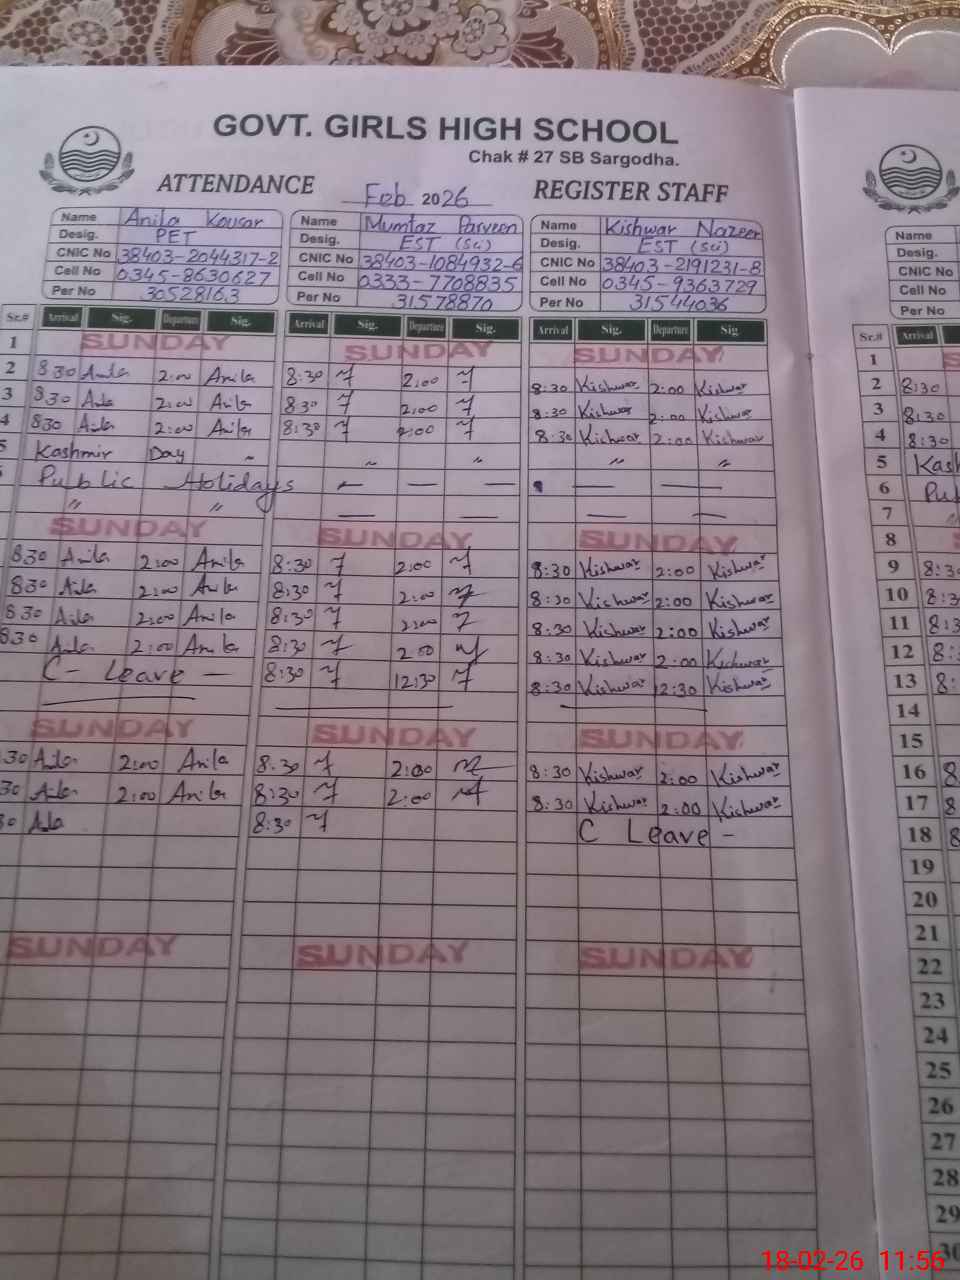 GOVT. GIRLS HIGH SCHOOL
Chak # 27 SB Sargodha.
ATTENDANCE Feb 2026 REGISTER STAFF
Name Anila Kousar Name Mumtaz Parveen Name Kishwar Nazeer Name
Desig. PET Desig. EST (Sci) Desig. EST (Sci) Desig.
CNIC No 38403-2044317-2 CNIC No 38403-1084932-6 CNIC No 38403-2191231-8 CNIC No
Cell No 0345-8630627 Cell No 0333-7708835 Cell No 0345-9363729 Cell No
Per No 30528163 Per No 31578870 Per No 31544036 Per No
Sr.# Arrival Sig. Departure Sig. Arrival Sig. Departure Sig. Arrival Sig. Departure Sig Sr.# Arrival
1 SUNDAY SUNDAY SUNDAY 1
2 8 30 Anila 2:00 Anila 8:30 2:00 8:30 Kishwar 2:00 Kishwar 2 8:30
3 8 30 Anila 2:00 Anila 8:30 2:00 8:30 Kishwar 2:00 Kishwar 3 8:30
4 830 Anila 2:00 Anila 8:30 2:00 8:30 Kishwar 2:00 Kishwar 4 8:30
5 Kashmir Day 〃 〃 〃 〃 〃 5 Kash
Public Holidays — — — — — 6 Pu
〃 〃 — — — — 7
SUNDAY SUNDAY SUNDAY 8
830 Anila 2:00 Anila 8:30 2:00 8:30 Kishwar 2:00 Kishwar 9 8:3
830 Anila 2:00 Anila 8:30 2:00 8:30 Kishwar 2:00 Kishwar 10 8:3
830 Anila 2:00 Anila 8:30 2:00 8:30 Kishwar 2:00 Kishwar 11 8:3
830 Anila 2:00 Anila 8:30 2:00 8:30 Kishwar 2:00 Kishwar 12 8:
C- Leave — 8:30 12:30 8:30 Kishwar 12:30 Kishwar 13 8:
14
SUNDAY SUNDAY SUNDAY 15
30 Anila 2:00 Anila 8:30 2:00 8:30 Kishwar 2:00 Kishwar 16 8
30 Anila 2:00 Anila 8:30 2:00 8:30 Kishwar 2:00 Kishwar 17 8
30 Anila 8:30 C Leave - 18 8
19
20
21
SUNDAY SUNDAY SUNDAY 22
23
24
25
26
27
28
29
30
18-02-26 11:56